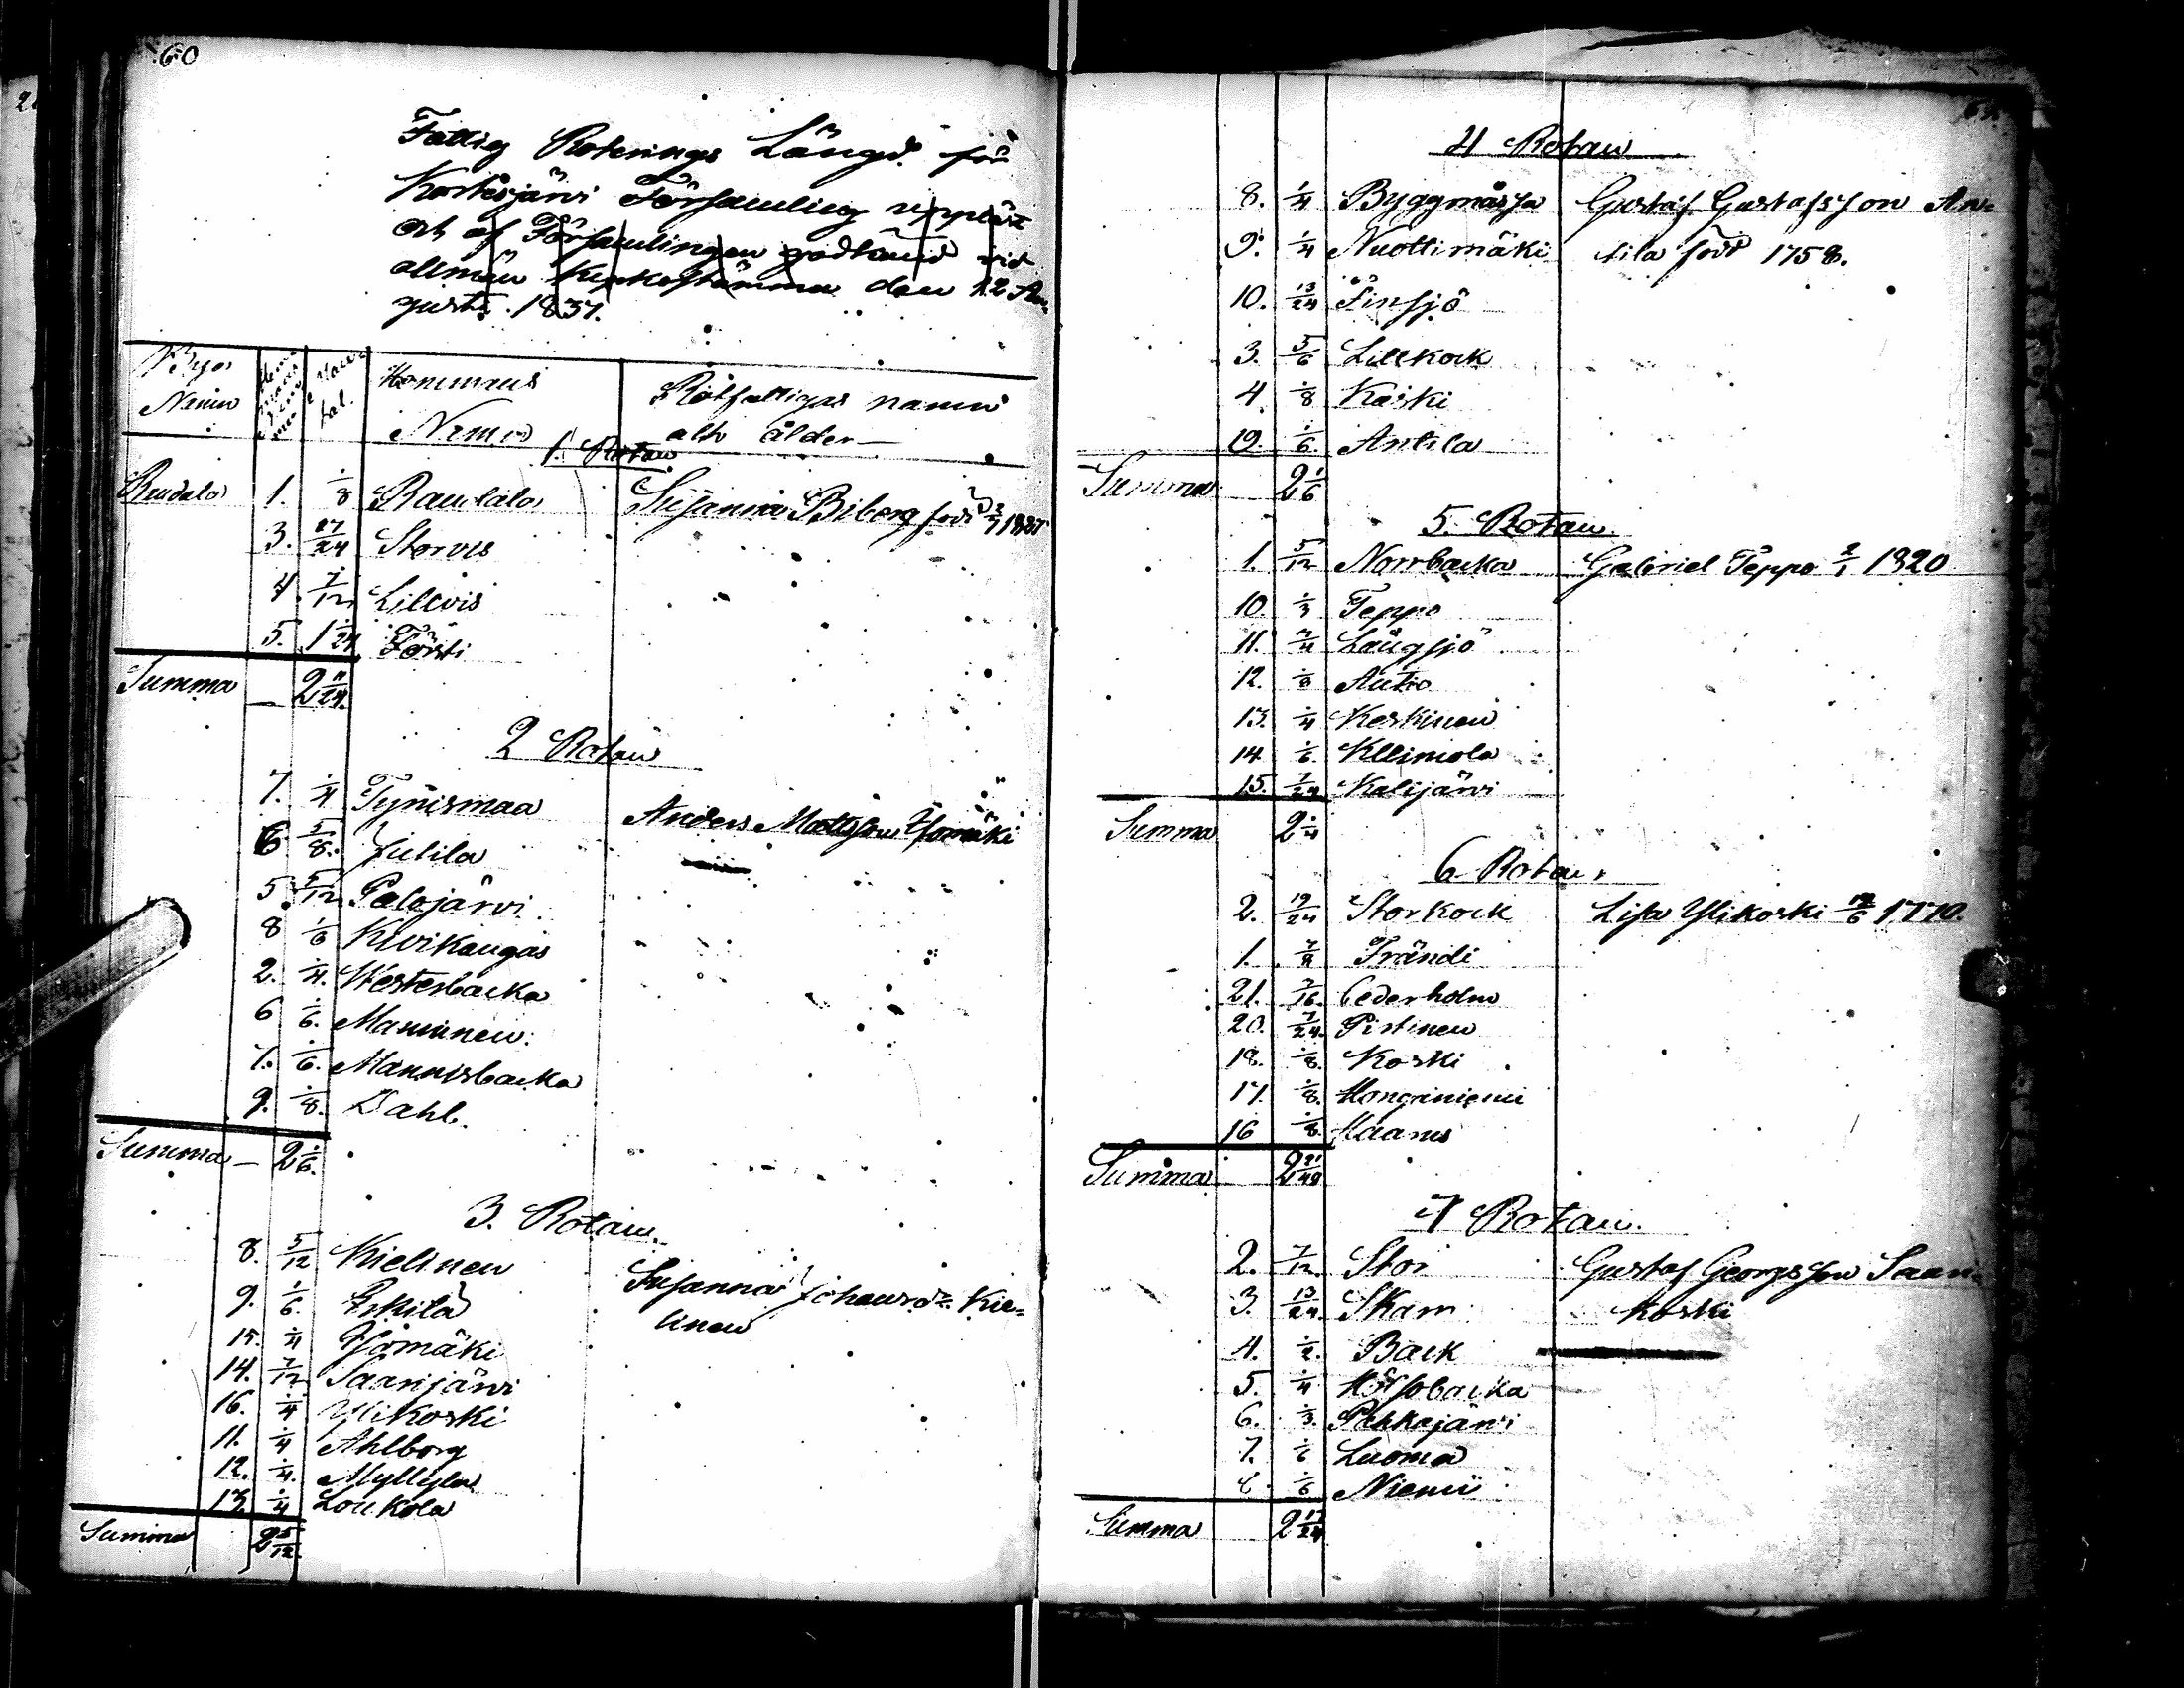 60
Fattig Roterings Längd för
Kortesjärvi Församling uppläst
och af Församlingen godkänd vid
allmän Kyrkostämma den 12 Au-
gusti 1837.
Byars Namn Hemmans Nummer Mantal. Hemmans Namn Rotfattigas namn och ålder
1. Rotan
Raudala 1. 1/8 Raudala Susanna Biberg född 1837
3. 17/24 Storvis
4. 7/12 Lillvis
5. 1 1/24 Försti
Summa 2 11/24.
2 Rotan
7. 1/4 Tynismaa Anders Mattsson Isomäki
6 5/8. Jutila
5. 5/12 Palojärvi
8 1/6 Kivikangas
2. 1/4. Westerbacka
6 1/6. Manninen.
7. 1/6. Mannisbacka
9. 1/8. Dahl.
Summa 2 1/6.
3. Rotan
8. 5/12 Kielinen Susanna Johansdr. Kie-
9. 1/6. Erkilä linen
15. 1/4 Isomäki
14. 7/12 Saarijärvi
16. 1/4 Ylikoski
11. 1/4 Ahlborg
12. 1/4. Myllylä
13. 1/4 Loukola
Summa 2 5/12.
4 Rotan
8. 1/4 Byggmässa Gustaf Gustafsson An-
9. 1/4 Nuottimäki tila född 1758.
10. 13/24 Finsjö
3. 5/6 Lillkock
4. 1/8 Kaski
19. 1/6. Antila
Summa 2 1/6
5. Rotan
1. 5/12 Norrbacka Gabriel Teppo 2/1 1820
10. 1/3 Teppo
11. 3/4 Långsjö
12. 1/8 Autio
13. 1/4 Keskinen
14 1/6. Kliimola
15. 7/24 Kalijärvi
Summa 2 1/4
6 Rotan.
2. 19/24 Storkock Lisa Ylikoski 1770.
1. Frändi
21. 7/16. Cederholm
20. 7/24. Pistinen
18. 1/8. Koski
17. 1/8. Honganiemi
16 1/8. Haams
Summa 2 21/48
7 Rotan.
2. 7/12. Stor Gustaf Georgsson Saari-
3. 13/24. Skam koski
4. 1/2. Back
5. 1/4 Högbacka
6. 1/3. Pahkajärvi
7. 1/6 Luoma
8. 1/6 Niemi
Summa 2 17/24